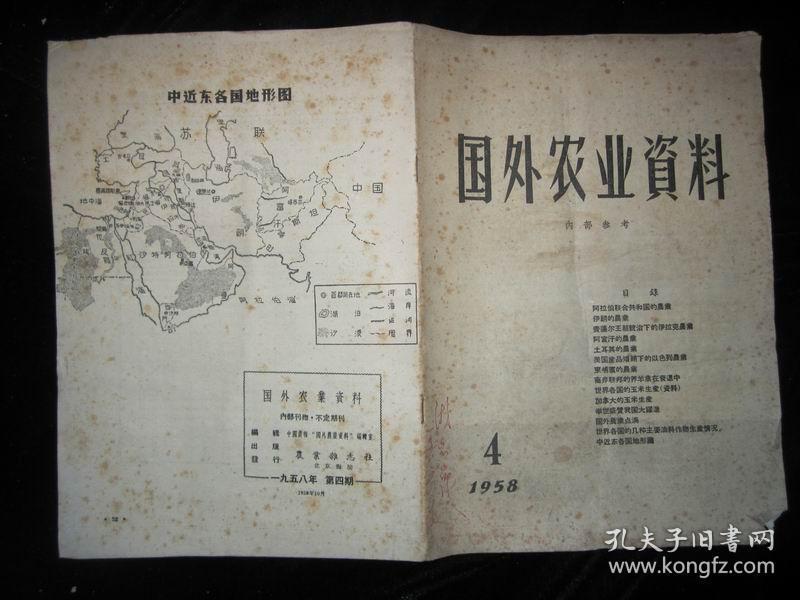 中近东各国地形图
苏联
中国
地中海
伊朗
阿富汗斯坦
沙特阿拉伯
阿拉伯海
首都所在地
河流
湖泊
海岸
运河
沙漠
国界
国外农業資料
內部刊物·不定期刊
編輯
中國農報“國外農業資料”編輯室
出版
發行
農業雜志社
北京
一九五八年 第四期
1958年10月
国外农业資料
內部参考
目錄
阿拉伯联合共和国的農業
伊朗的農業
費薩尔王朝統治下的伊拉克農業
阿富汗的農業
土耳其的農業
美国產品傾銷下的以色列農業
柬埔寨的農業
南非联邦的养羊業在衰退中
世界各国的玉米生產(資料)
加拿大的玉米生產
举世盛贊我国大躍進
国外農業点滴
世界各国的几种主要油料作物生產情况。
中近东各国地形圖
4
1958
孔夫子旧书网
www.kongfz.com